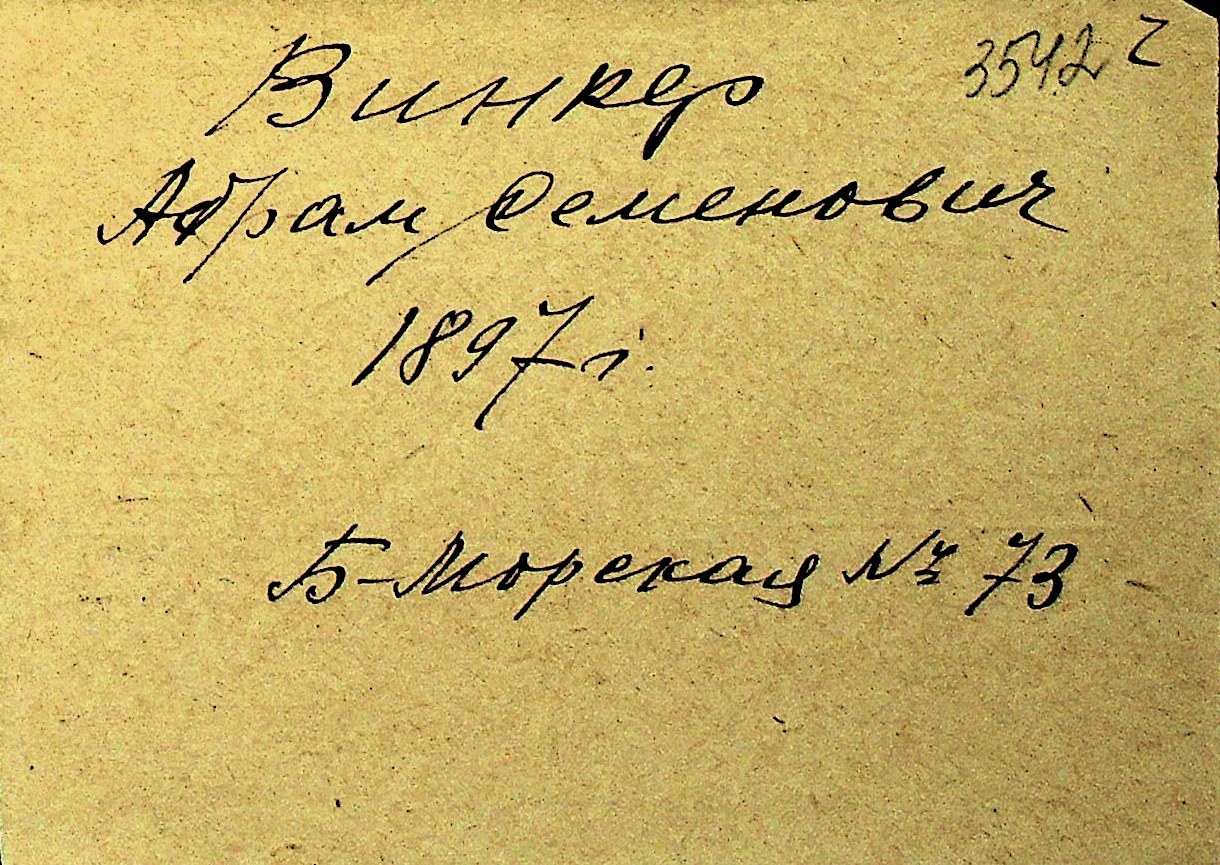 3542 г
Винкер
Абрам Семенович
1897 г.
Б-Морская № 73